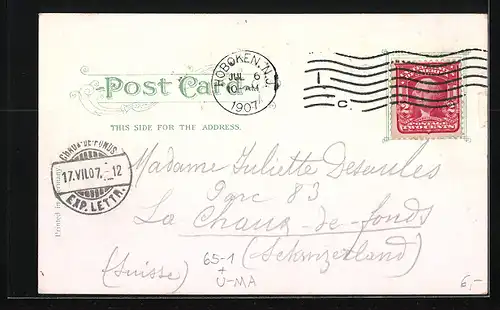 HOBOKEN, N.J.
JUL 6
10-AM
1907
1
C.
Post Card
THIS SIDE FOR THE ADDRESS.
POSTAGE
TWO CENTS
CHAUX-DE-FONDS
17.VII.07. - 12
EXP. LETTR.
Printed in Germany
Madame Juliette Desaules
Parc 83
La Chaux-de-fonds
(Schwizerland)
(Suisse)
65-1
+
U-MA
6,-